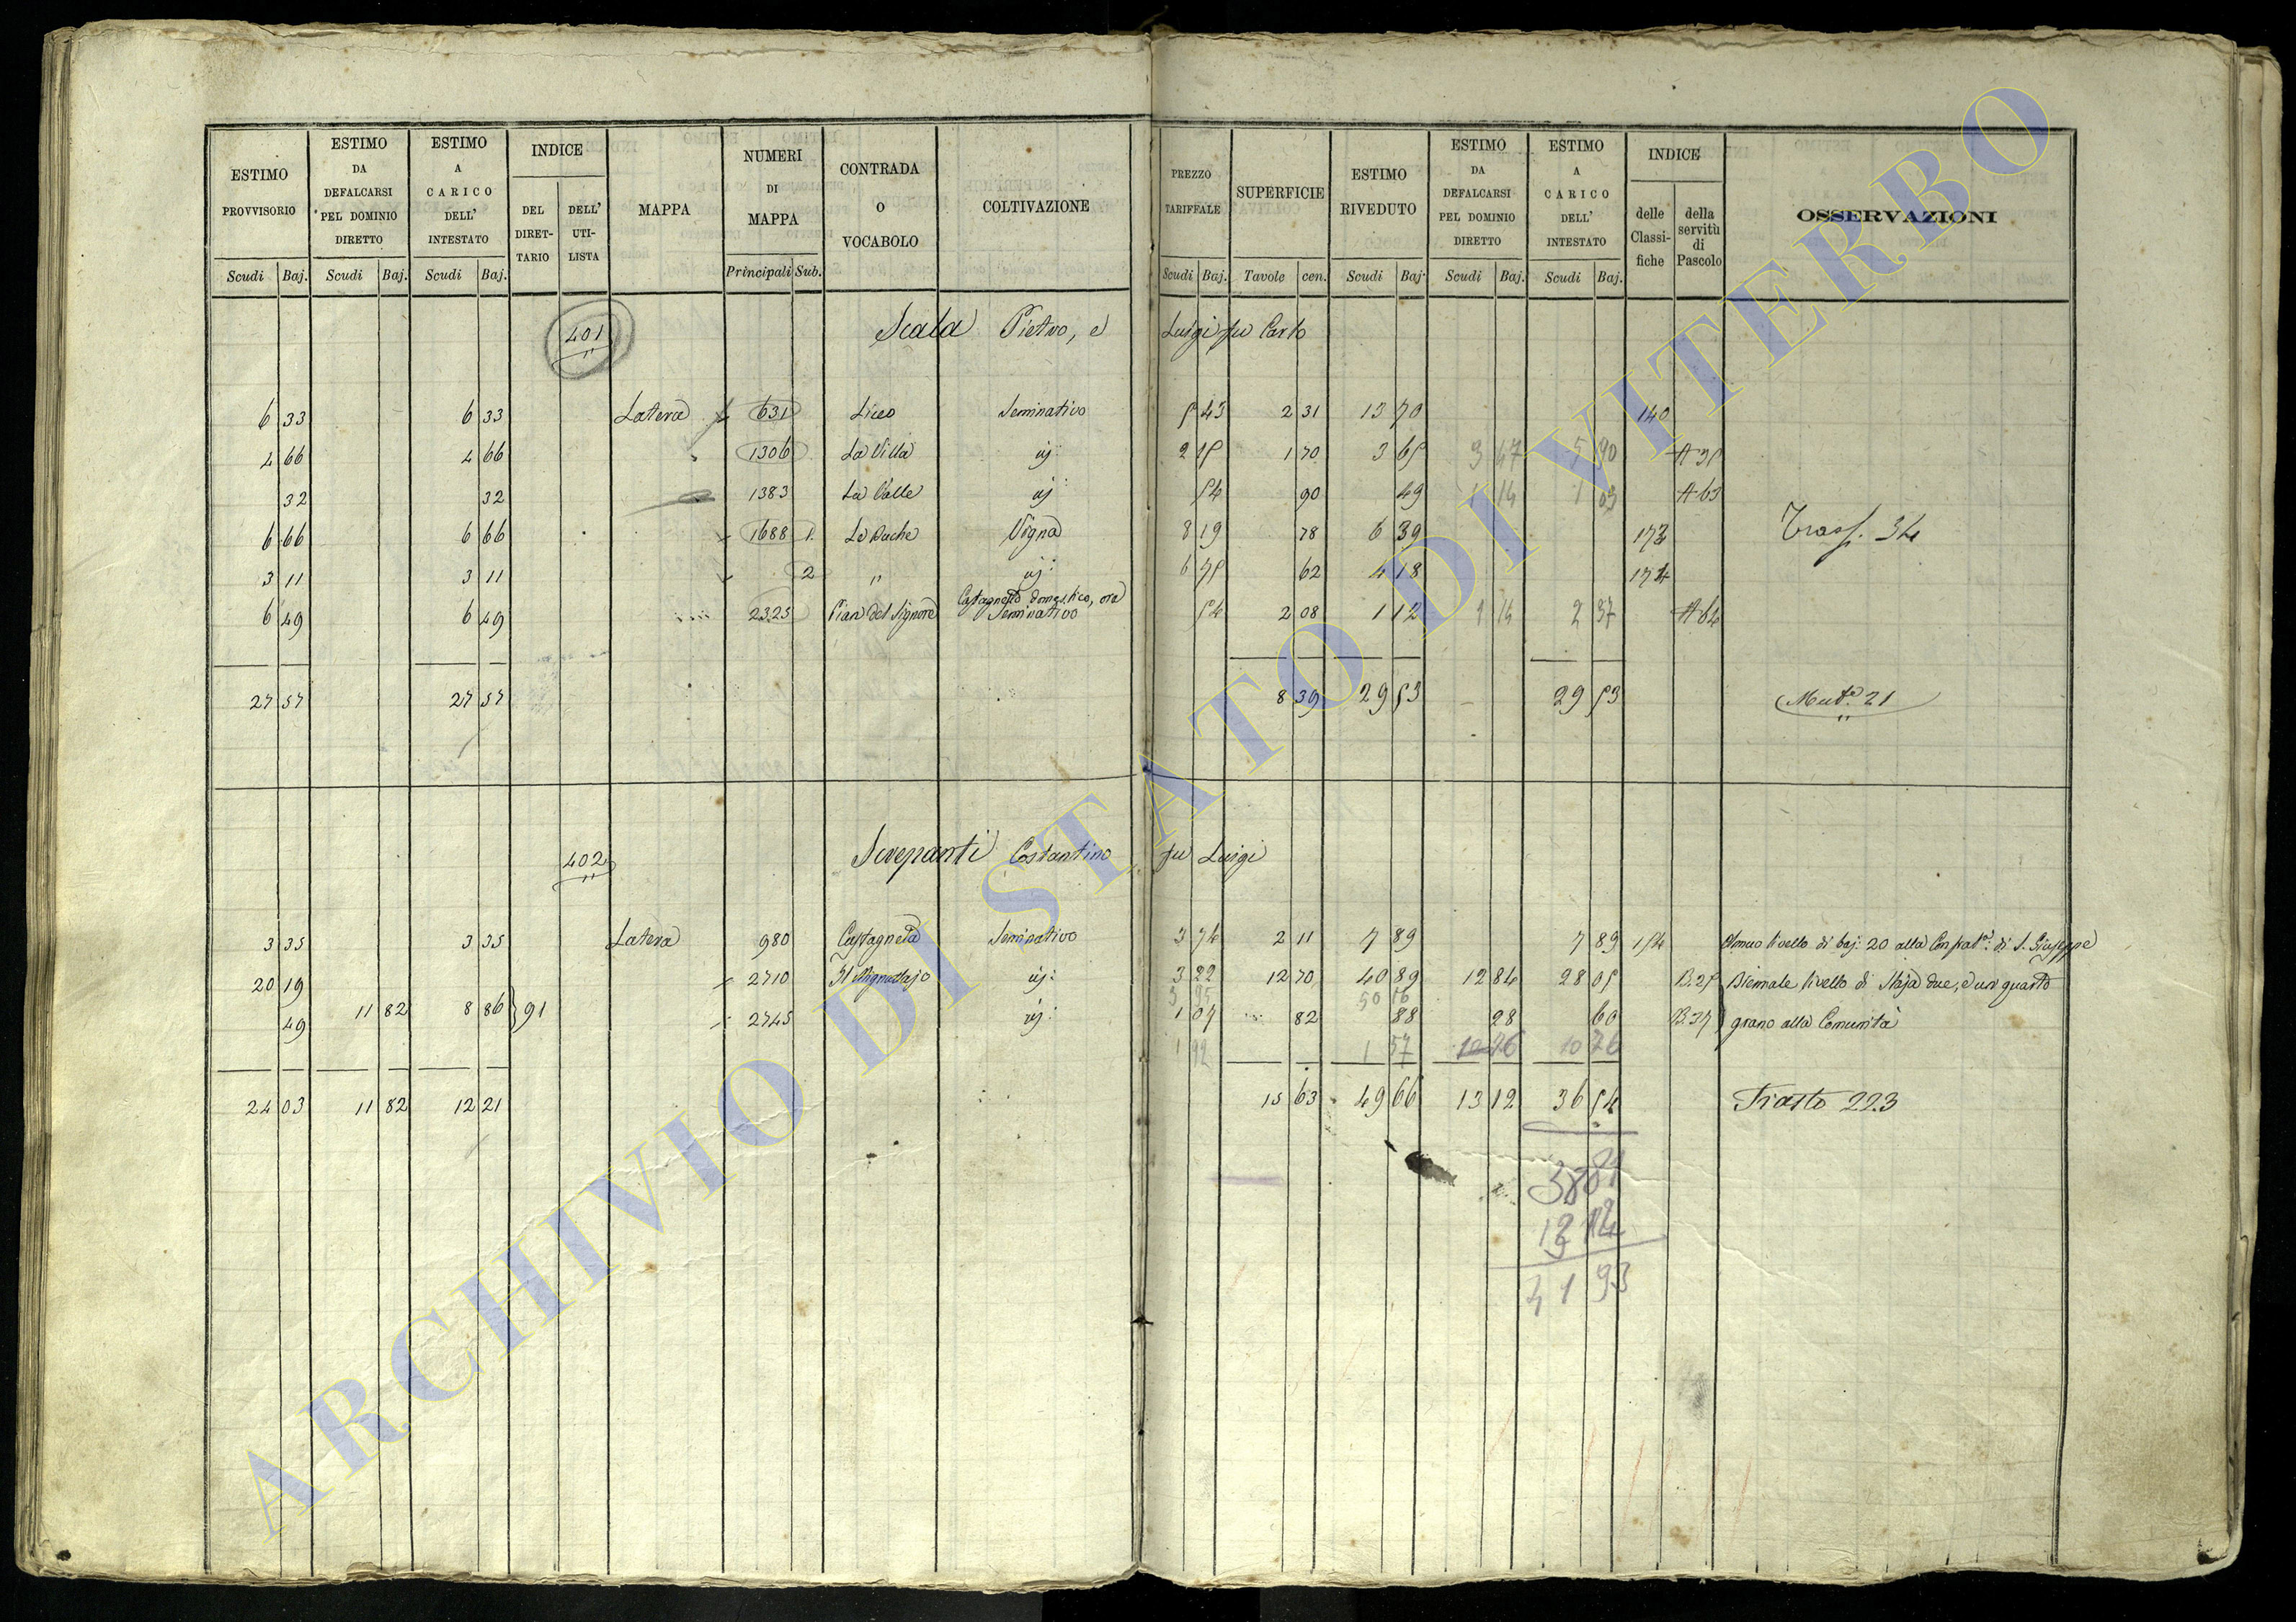 ESTIMO PROVVISORIO | ESTIMO DA DEFALCARSI PEL DOMINIO DIRETTO | ESTIMO A CARICO DELL' INTESTATO | INDICE | MAPPA | NUMERI DI MAPPA | CONTRADA O VOCABOLO | COLTIVAZIONE | PREZZO TARIFFALE | SUPERFICIE | ESTIMO RIVEDUTO | ESTIMO DA DEFALCARSI PEL DOMINIO DIRETTO | ESTIMO A CARICO DELL' INTESTATO | INDICE | OSSERVAZIONI
DEL DIRET-TARIO | DELL' UTI-LISTA | delle Classi-fiche | della servitù di Pascolo
Scudi Baj. | Scudi Baj. | Scudi Baj. | Principali Sub. | Scudi Baj. | Tavole cen. | Scudi Baj. | Scudi Baj. | Scudi Baj.
401 Scala Pietro, e Luigi fu Carlo
6 33 | 6 33 | Latera | 631 | Liceo | Seminativo | 5 43 | 2 31 | 13 70 | 140
4 66 | 4 66 | 1306 | La Villa | id: | 2 15 | 1 70 | 3 65 | 3 47 | 5 90 | A 35
32 | 32 | 1383 | La Valle | id: | 54 | 90 | 49 | 14 | 1 03 | A 63
6 66 | 6 66 | 1688 1. | Le | Vigna | 8 19 | 78 | 6 39 | 173 | Trasf. 34
3 11 | 3 11 | 2 | " | id: | 6 75 | 62 | 4 18 | 174
6 49 | 6 49 | 2325 | Pian del Signore | Castagneto domestico, ora Seminativo | 54 | 2 08 | 1 12 | 1 14 | 2 37 | A 64
27 57 | 27 57 | 8 39 | 29 53 | 29 53 | Mut.e 21
402 Screpanti Costantino fu Luigi
3 35 | 3 35 | Latera | 980 | Castagneta | Seminativo | 3 74 | 2 11 | 7 89 | 7 89 | 154 | Annuo livello di baj: 20 alla Confrat.a di S. Giuseppe
20 19 | 2710 | Il | id: | 3 22 | 12 70 | 40 89 | 12 84 | 28 05 | B.25 | Biennale livello di Staja due, e un quarto
11 82 | 8 86 | 91 | 3 95 | 50 16
49 | 2745 | id: | 1 07 | 82 | 88 | 28 | 60 | B.37 | grano alla Comunità
1 92 | 1 57 | 10 76 | 10 76
24 03 | 11 82 | 12 21 | 15 63 | 49 66 | 13 12 | 36 54 | Trasto 223
93
ARCHIVIO DI STATO DI VITERBO